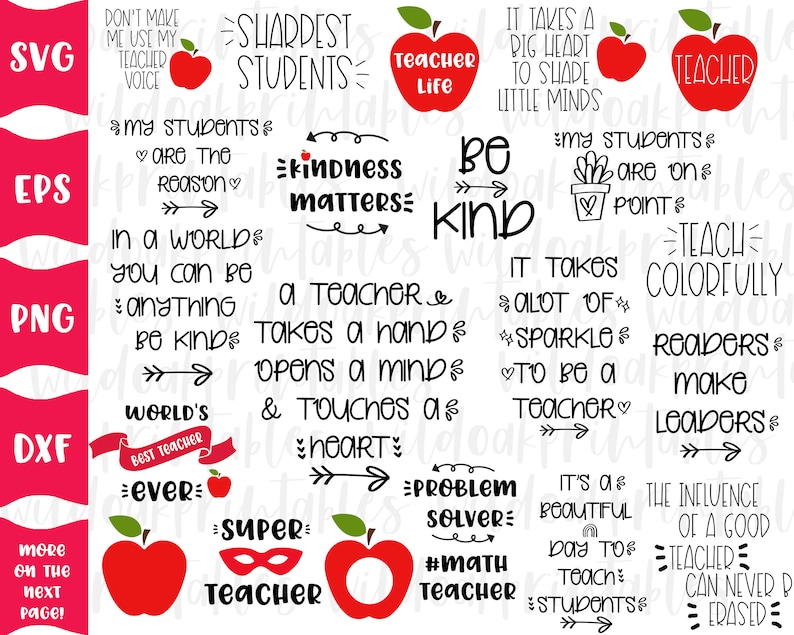 SVG
EPS
PNG
DXF
MORE
ON THE
NEXT
PAGE!
DON'T MAKE
ME USE MY
TEACHER
VOICE
SHARPEST
STUDENTS
TEACHER
LIFE
IT TAKES A
BIG HEART
TO SHAPE
LITTLE MINDS
TEACHER
MY STUDENTS
ARE THE
REASON
KINDNESS
MATTERS
BE
KIND
MY STUDENTS
ARE ON
POINT
IN A WORLD
YOU CAN BE
ANYTHING
BE KIND
A TEACHER
TAKES A HAND
OPENS A MIND
& TOUCHES A
HEART
IT TAKES
ALOT OF
SPARKLE
TO BE A
TEACHER
TEACH
COLORFULLY
READERS
MAKE
LEADERS
WORLD'S
BEST TEACHER
EVER
SUPER
TEACHER
PROBLEM
SOLVER
#MATH
TEACHER
IT'S A
BEAUTIFUL
DAY TO
TEACH
STUDENTS
THE INFLUENCE
OF A GOOD
TEACHER
CAN NEVER B
ERASED
wildoakprintables